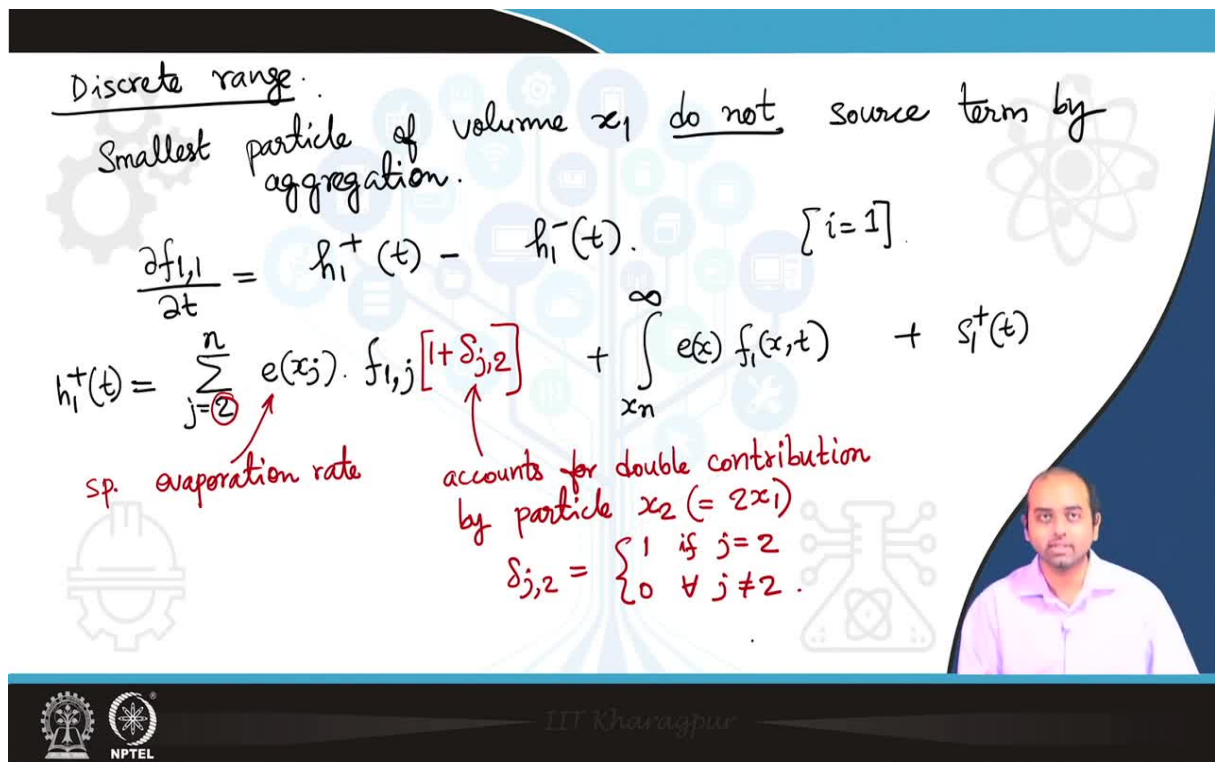 Discrete range.
Smallest particle of volume x₁ do not source term by
aggregation.
∂f₁,₁/∂t = h₁⁺(t) − h₁⁻(t). [i=1].
h₁⁺(t) = ∑_{j=2}^{n} e(xⱼ). f₁,ⱼ [1+ δⱼ,₂] + ∫_{xn}^{∞} e(x) f₁(x,t) + S₁⁺(t)
sp. evaporation rate
accounts for double contribution
by particle x₂ (= 2x₁)
δⱼ,₂ = { 1 if j=2
0 ∀ j ≠ 2 .
IIT Kharagpur
NPTEL